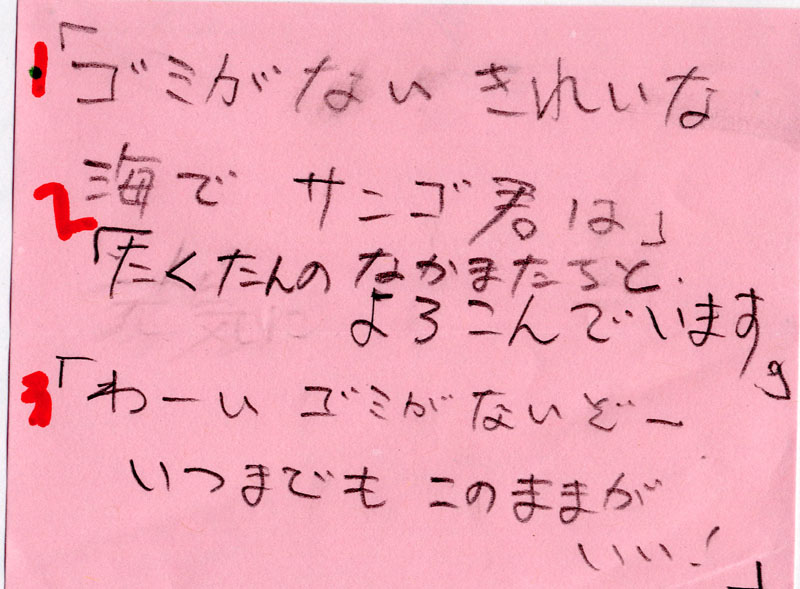 1「ゴミがない きれいな
海で サンゴ君は」
2「たくたんの なかまたちと
よろこんでいます。」
3「わーい ゴミがないぞー
いつまでも このままが
いい!」